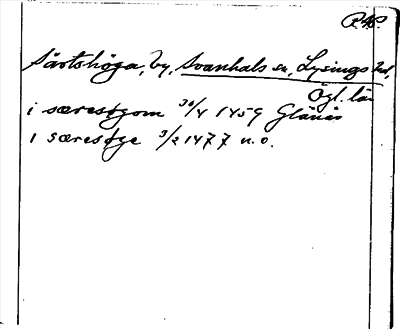 R. 40.
Särtshöga, by, Svanhals sn, Lysings hd,
Ögl. län
i særesøgom 30/4 1459 Glänås
i særesøge 3/2 1477 n.o.